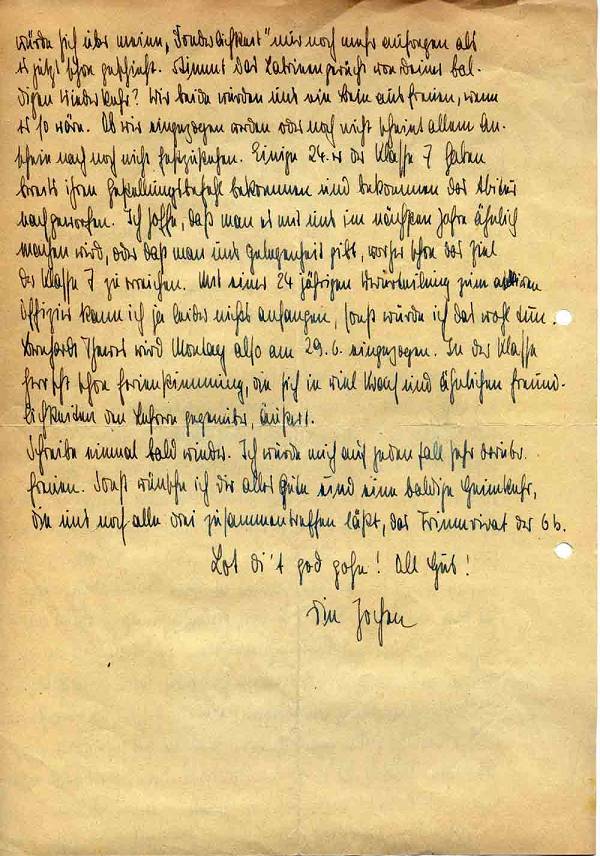 würde sich über meine „Sonderlichkeit" nur noch mehr aufregen als
es jetzt schon geschieht. Stimmt das Latrinengerücht von deiner bal-
digen Wiederkehr? Wir beide würden uns ein Bein ausfreuen, wenn
es so wäre. Ob wir eingezogen werden oder noch nicht scheint allem An-
schein nach noch nicht festzustehen. Einige 24.er der Klasse 7 haben
bereits ihren Gestellungsbefehl bekommen und bekommen das Abitur
nachgeworfen. Ich hoffe, daß man es mit uns im nächsten Jahre ähnlich
machen wird, oder daß man uns Gelegenheit gibt, vorher schon das Ziel
der Klasse 7 zu erreichen. Mit einer 24 jährigen Verurteilung zum aktiven
Offizier kann ich ja leider nichts anfangen, sonst würde ich das wohl tun.
wird Montag also am 29.6. eingezogen. In der Klasse
herrscht schon Ferienstimmung, die sich in viel Krach und ähnlichen Freund-
lichkeiten den Lehrern gegenüber, äußert.
Schreibe einmal bald wieder. Ich würde mich auf jeden Fall sehr darüber
freuen. Sonst wünsche ich dir alles Gute und eine baldige Heimkehr,
die uns noch alle drei zusammentreffen läßt, das Triumvirat der 6b.
Lot di't god gohn! All Gud!
Din Jochen